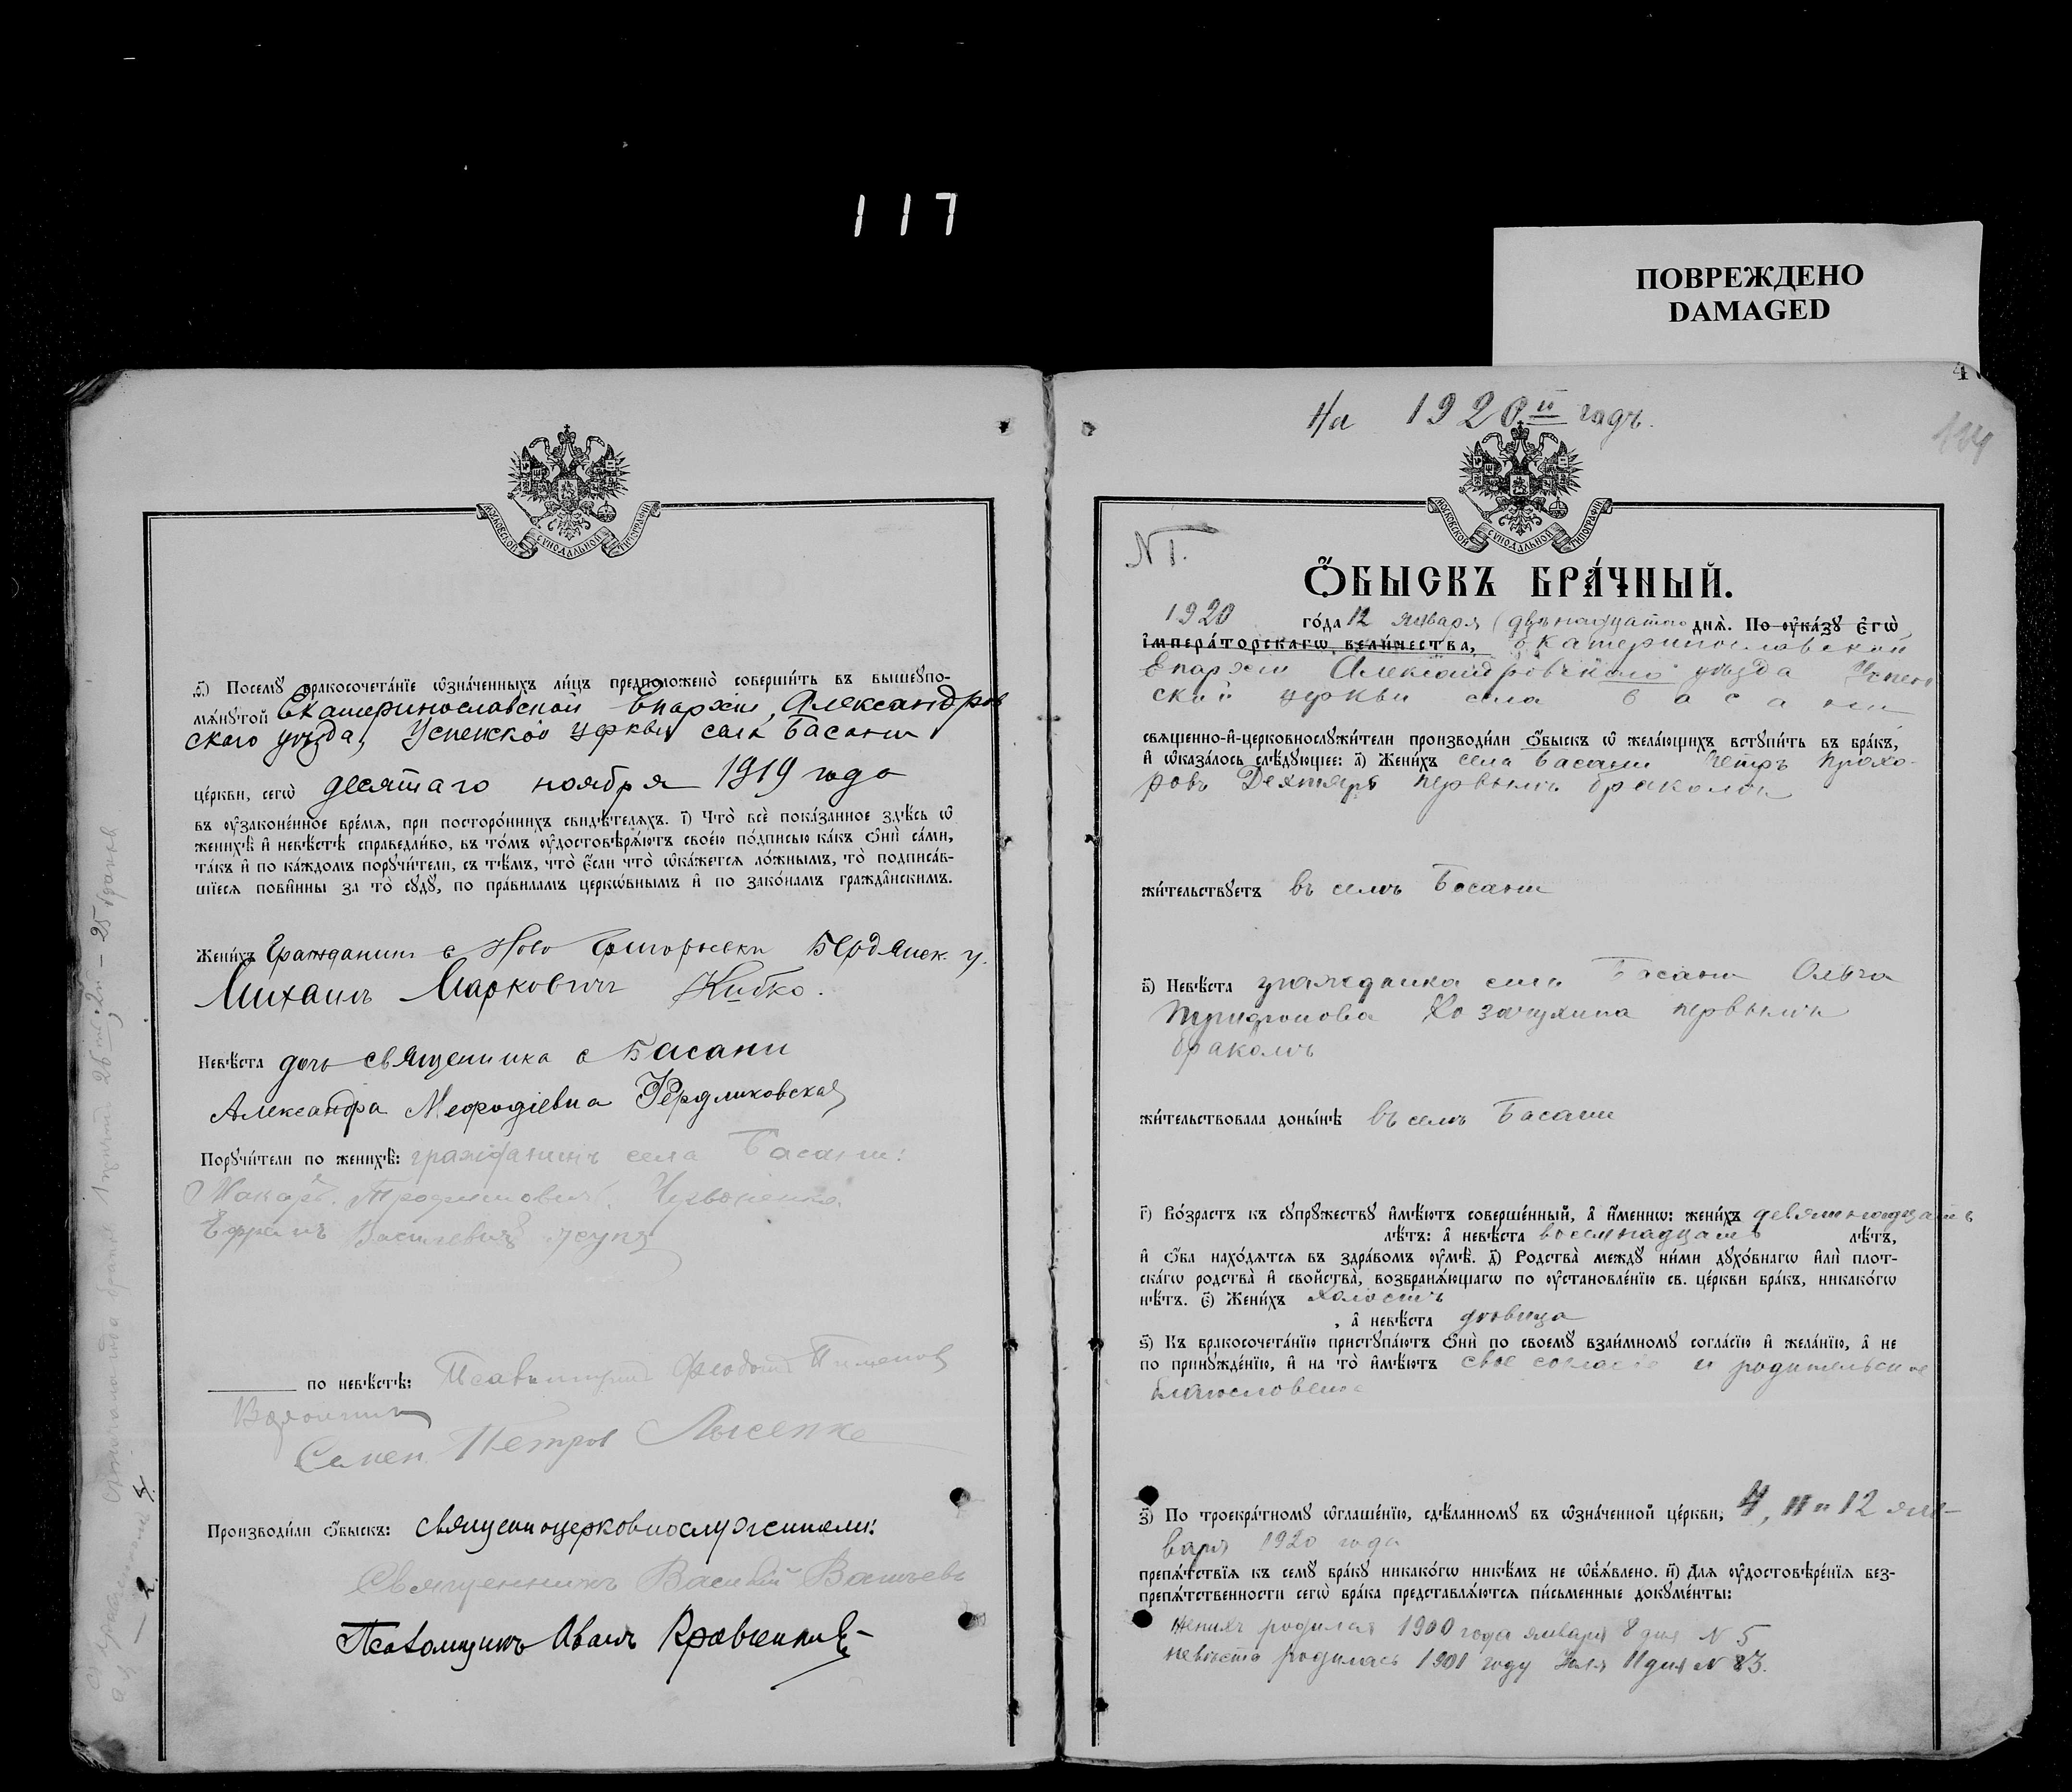 117
ПОВРЕЖДЕНО
DAMAGED
МОСКОВСКОЙ СѴНОДАЛЬНОЙ ТИПОГРАФІИ
ѳ҃) Посемꙋ бракосочета́нїе ѡ҆зна́ченныхъ ли́цъ предположено̀ соверши́ть въ вышеꙋпо-
мѧ́нꙋтой Екатеринославской Епархіи, Александров
ского уѣзда, Успенской церкви села Басани
це́ркви, сегѡ̀ десятаго ноября 1919 года
въ ᲂу҆зако́ненное вре́мѧ, при посторо́ннихъ свидѣ́телѧхъ. і҃) Что̀ всѐ пока́занное здѣ́сь ѡ҆
женихѣ̀ и҆ невѣ́стѣ справедли́во, въ то́мъ ᲂу҆достовѣрѧ́ютъ свое́ю по́дписью ка́къ ѻ҆нѝ са́ми,
та́къ и҆ по ка́ждомъ порꙋчи́тели, съ тѣ́мъ, что̀ є҆́сли что̀ ѡ҆ка́жетсѧ ло́жнымъ, то̀ подписа́в-
шїесѧ пови́нны за то̀ сꙋдꙋ̀, по пра́виламъ церко́внымъ и҆ по зако́намъ гражда́нскимъ.
Жени́хъ Гражданинъ с Ново Григорьевки Бердянск. у.
Михаилъ Марковичъ Кибко.
Невѣ́ста дочь священника с Басани
Александра Меѳодіевна
Порꙋчи́тели по женихѣ̀: гражданинъ села Басани:
Макаръ Трофимовичъ
Ефремъ Васильевичъ
по невѣ́стѣ: Псаломщикъ Феодотъ
Семен Петров Лысенко
Производи́ли ѻ҆́быскъ: священноцерковнослужители:
Священникъ Василій Васильевъ
Псаломщикъ Иванъ Кравченко
На 1920й годъ.
4
МОСКОВСКОЙ СѴНОДАЛЬНОЙ ТИПОГРАФІИ
N 1.
Ѻ҆́БЫСКЪ БРА́ЧНЫЙ.
1920 го́да 12 января (двѣнадцатаго днѧ̀. По ᲂу҆ка́зꙋ є҆гѡ̀
і҆мпера́торскагѡ вели́чества, Екатеринославской
Епархіи Александровскаго уѣзда Успен
ской церкви села Басани
свѧще́нно-и҆-церковнослꙋжи́тели производи́ли ѻ҆́быскъ ѡ҆ жела́ющихъ встꙋпи́ть въ бра́къ,
и҆ ѡ҆каза́лось слѣ́дꙋющее: а҃) Жени́хъ села Басани Петръ Прохо-
ровъ Дехтярь первымъ бракомъ
жи́тельствꙋетъ въ селѣ Басани
в҃) Невѣ́ста гражданка села Басани Ольга
Трифонова первымъ
бракомъ
жи́тельствовала доны́нѣ въ селѣ Басани
г҃) Во́зрастъ къ сꙋпрꙋ́жествꙋ и҆мѣ́ютъ соверше́нный, а҆ и҆́менно: жени́хъ девятнадцать
лѣ́тъ: а҆ невѣ́ста восемнадцать лѣ́тъ,
и҆ ѻ҆́ба нахо́дѧтсѧ въ здра́вомъ ᲂу҆мѣ̀. д҃) Родства̀ междꙋ̀ ни́ми дꙋхо́внагѡ и҆лѝ плот-
ска́гѡ родства̀ и҆ сво́йства, возбранѧ́ющагѡ по ᲂу҆становле́нїю св. це́ркви бра́къ, никако́гѡ
нѣ́тъ. є҃) Жени́хъ холостъ
, а҆ невѣ́ста дѣвица
ѕ҃) Къ бракосочета́нїю пристꙋпа́ютъ ѻ҆нѝ по своемꙋ̀ взаи́мномꙋ согла́сїю и҆ жела́нїю, а҆ не
по принꙋжде́нїю, и҆ на то̀ и҆мѣ́ютъ свое согласіе и родительское
благословеніе
з҃) По троекра́тномꙋ ѡ҆глаше́нїю, сдѣ́ланномꙋ въ ѡ҆зна́ченной це́ркви, 4, 11 и 12 ян-
варя 1920 года
препѧ́тствїѧ къ семꙋ̀ бра́кꙋ никако́гѡ никѣ́мъ не ѡ҆б̾ѧ́влено. и҃) Длѧ ᲂу҆достовѣре́нїѧ без-
препѧ́тственности сегѡ̀ бра́ка представлѧ́ютсѧ пи́сьменные докꙋме́нты:
Женихъ родился 1900 года января 8 дня N 5
невѣста родилась 1901 году Іюля 11 дня N 83.